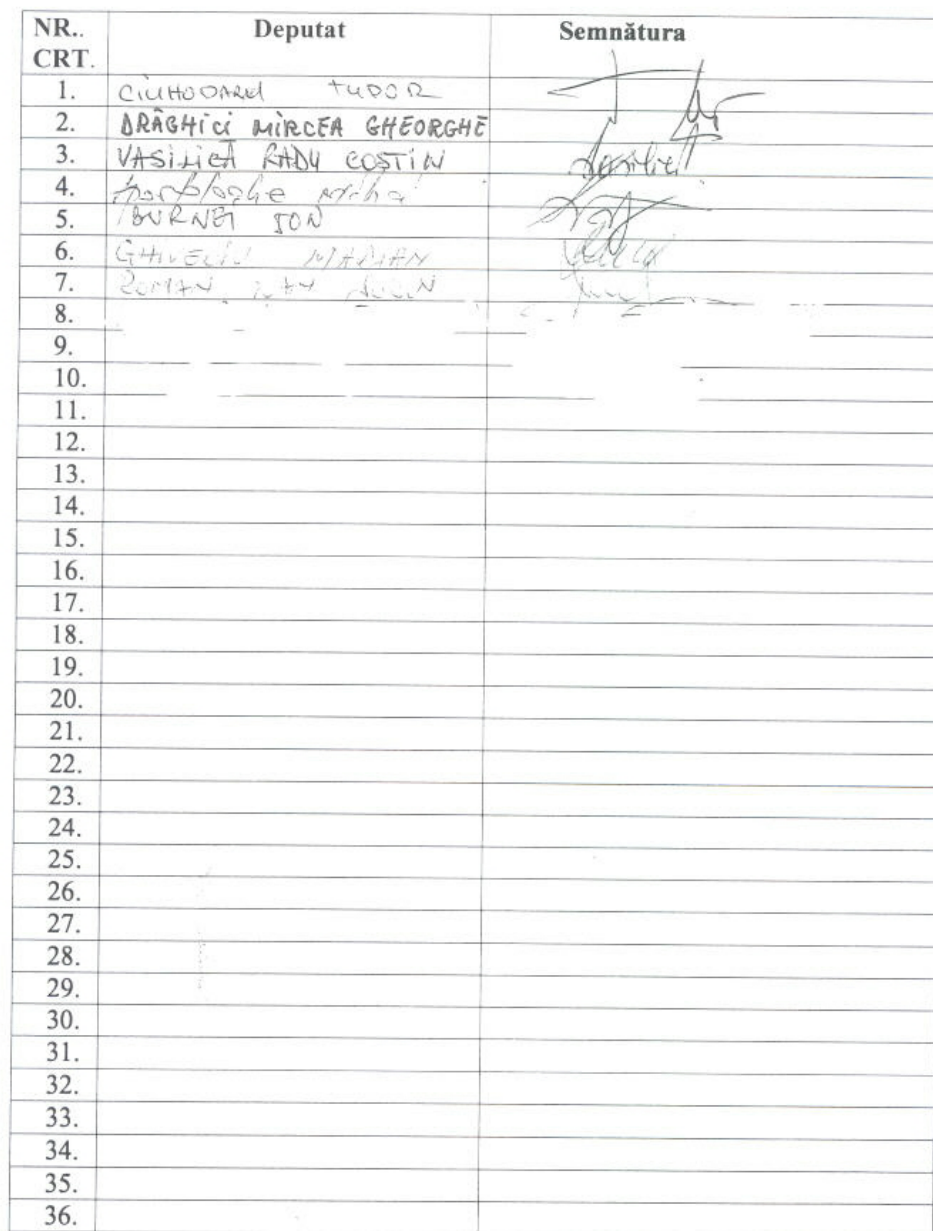 NR.. Deputat Semnătura
CRT.
1. CIUHODARU TUDOR
2. DRĂGHICI MIRCEA GHEORGHE
3. VASILICĂ RADU COSTIN
4.
5. BURNEI ION
6. GHIVECIU MARIAN
7. ROMAN
8.
9.
10.
11.
12.
13.
14.
15.
16.
17.
18.
19.
20.
21.
22.
23.
24.
25.
26.
27.
28.
29.
30.
31.
32.
33.
34.
35.
36.